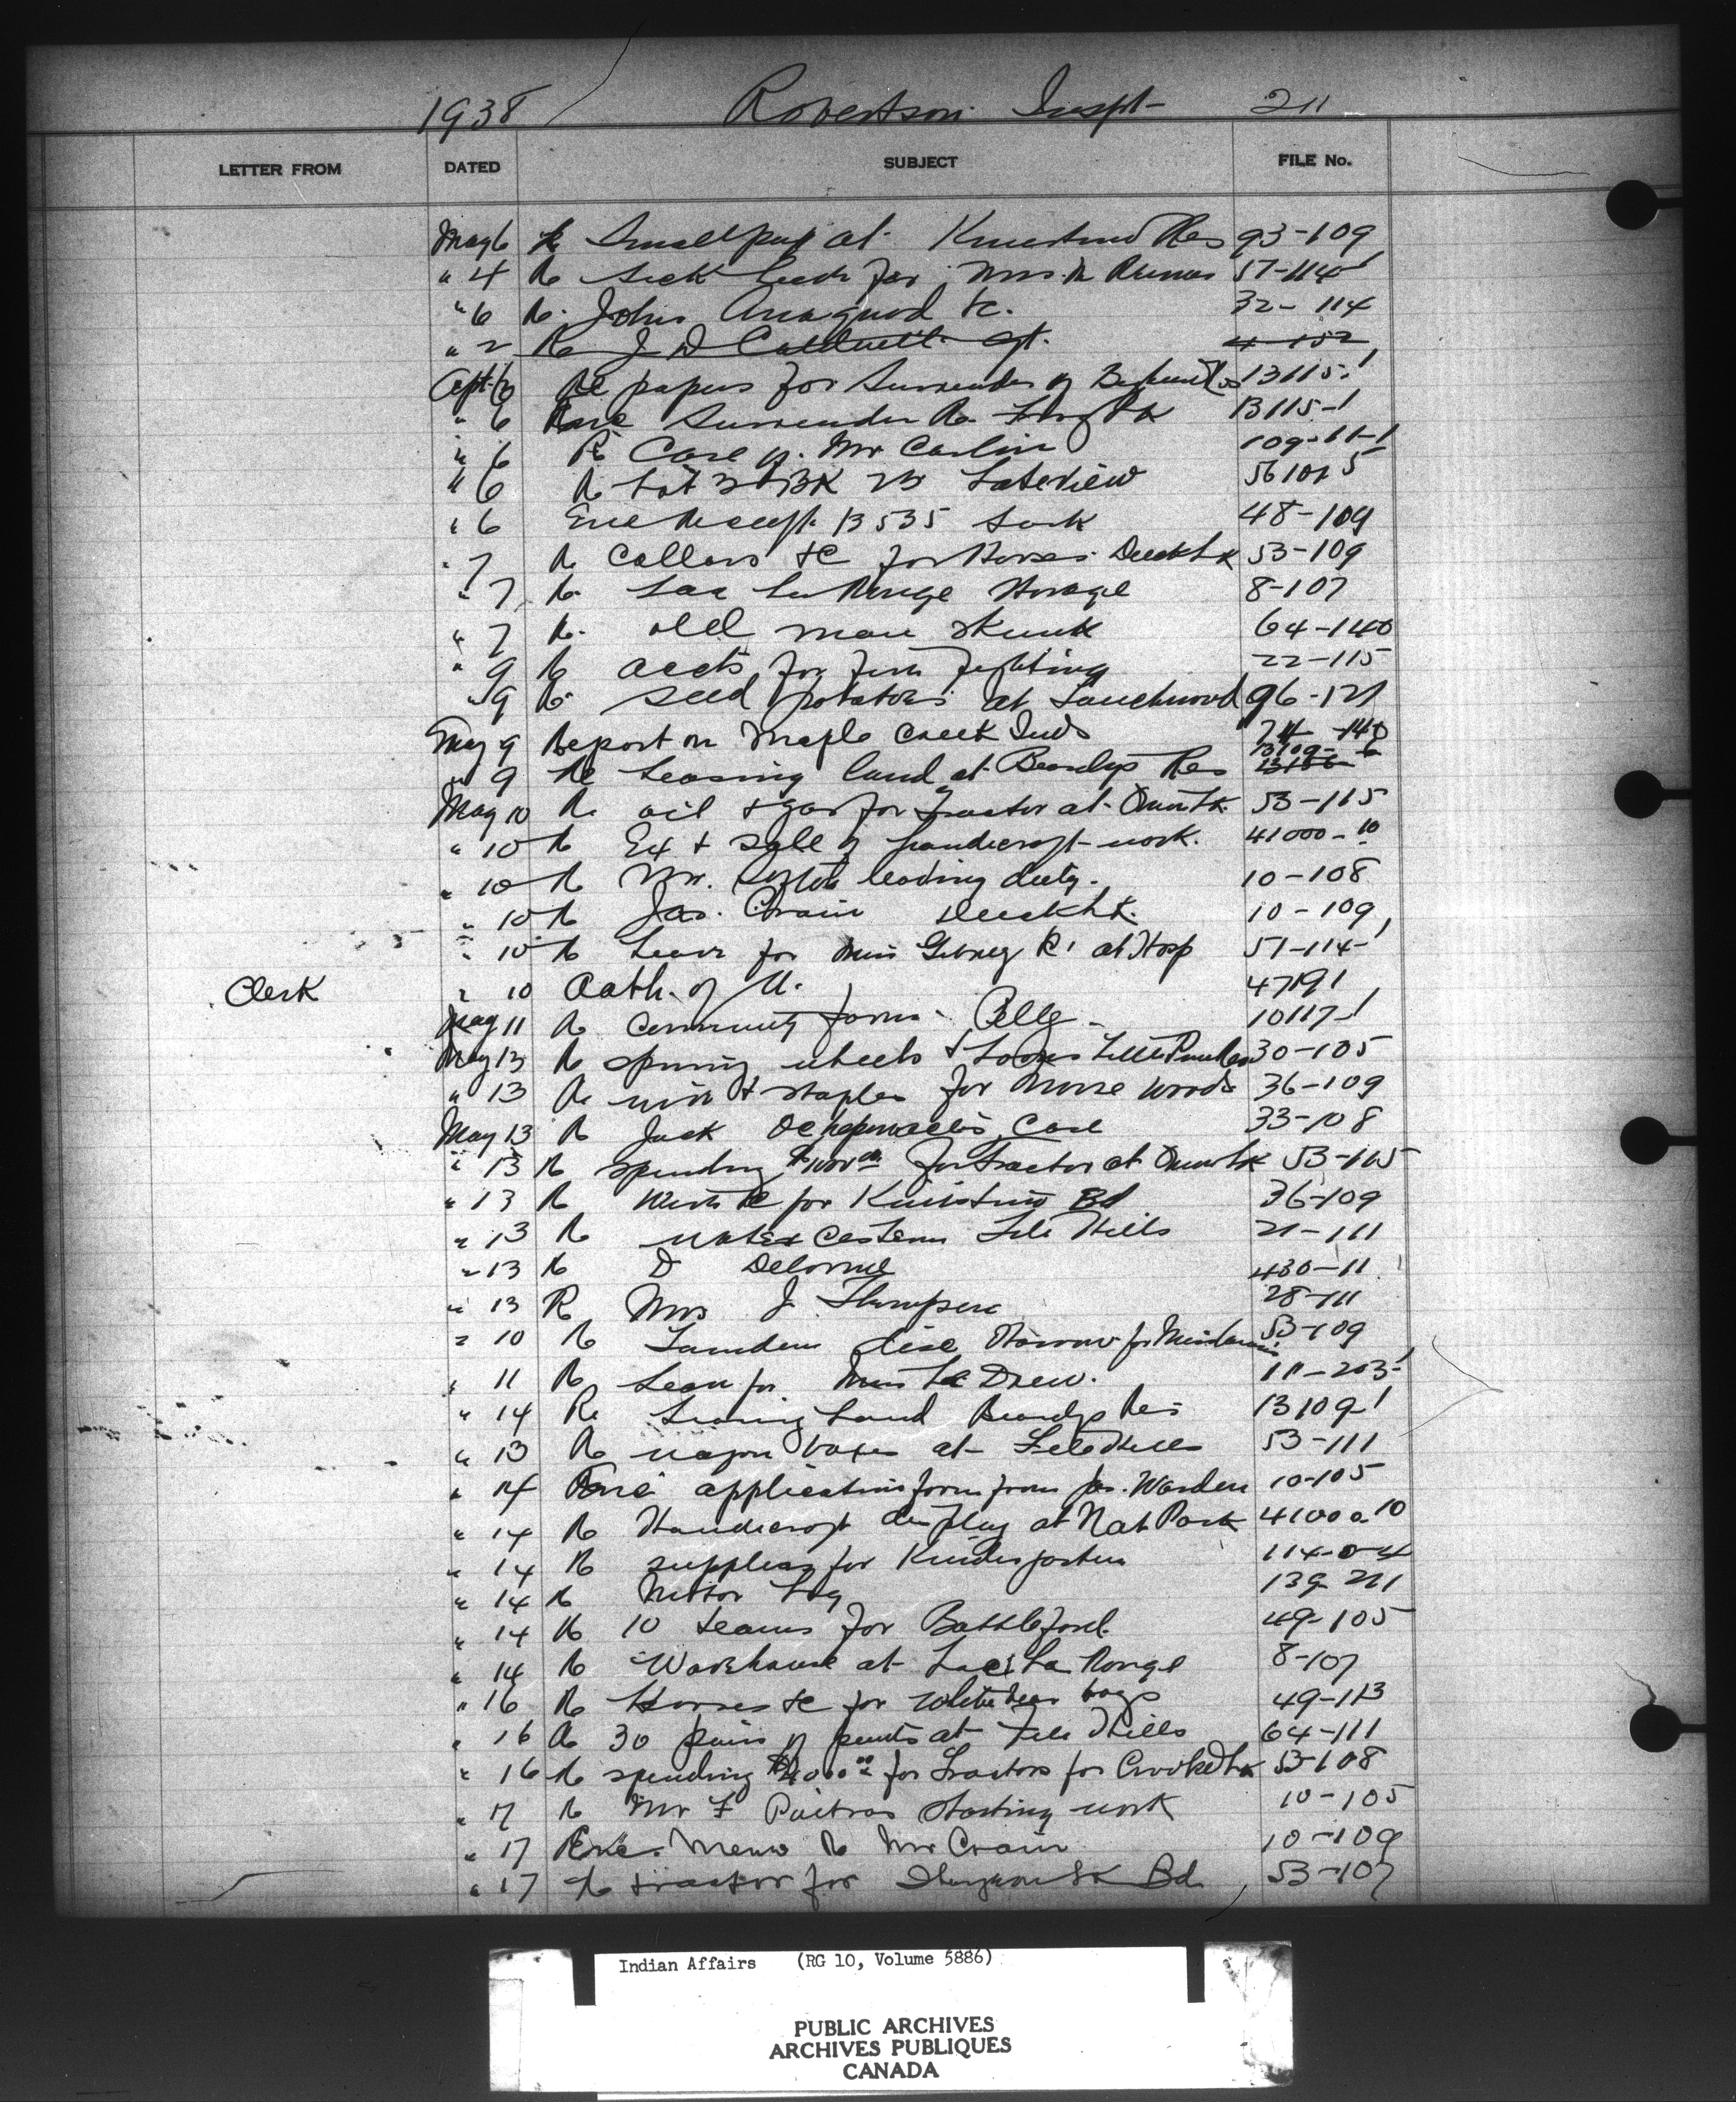 1938 Robertson Inspt 211
LETTER FROM DATED SUBJECT FILE No.
May 6 Re Smallpox at Kinistino Res 93-109
" 4 Re Sick leave for Mrs 57-114-1
" 6 Re John &c. 32-114
" 2 Re J D Caldwell Agt. 4-152
6 Re papers for Surrender of 13115-1
" 6 Surrender Re 13115-1
" 6 Re Case of Mr Carlin 109-11-1
" 6 Re Lot BK 23 Lakeview
" 6 Enc Receipt B 535 48-109
" 7 Re Collars &c for Horses Duck Lk 53-109
" 7 Re Lac La Ronge Storage 8-107
" 7 Re old man Skunk 64-140
" 9 Re accts for fire fighting 22-115
" 9 Re seed potatoes at Touchwood 96-121
May 9 Report on Maple Creek Inds
" 9 Re Leasing land at Beardys Res 13109-6
May 10 Re oil & gas for Tractor at Onion Lk. 53-115
" 10 Re Ex & Sale of handicraft work. 41000-10
" 10 Re Mr. leaving duty. 10-108
" 10 Re Jas. Crain Duck Lk. 10-109
" 10 Re Leave for Miss at Hosp 57-114-1
Clerk " 10 Oath of A. 47191
May 11 Re Community farm Pelly 10117-1
May 13 Re spinning wheels & Looms Little Pine Res 30-105
" 13 Re wire & staples for Moose Woods 36-109
May 13 Re Jack Case 33-108
" 13 Re spending for Tractor at Onion Lk 53-115
" 13 Re Wire &c for Kinistino Bd 36-109
" 13 Re water cistern File Hills 21-111
" 13 Re D Delorme 430-11
" 13 Re Mrs J. Thompson 28-111
" 10 Re Tandem disc Harrow for 53-109
" 11 Re Leave for Miss Le Drew. 111-203-1
" 14 Re Leasing Land Beardys Res 13109-1
" 13 Re wagon boxes at File Hills 53-111
" 14 Enc application form from Jas. Warden 10-105
" 14 Re Handicraft display at Nat Park 41000-10
" 14 Re supplies for Kindergarten
" 14 Re Motor Log 139-211
" 14 Re 10 teams for Battleford. 49-105
" 14 Re Warehouse at Lac La Ronge 8-107
" 16 Re Horses &c for White Bear 49-113
" 16 Re 30 pairs of pants at File Hills 64-111
" 16 Re spending for Tractors for Crooked Lk 53-108
" 17 Re Mr F Poitras starting work 10-105
" 17 Enc. Memo Re Mr Crain 10-109
" 17 Re tractor for Sturgeon Lk Bd. 53-107
Indian Affairs (RG 10, Volume 5886)
PUBLIC ARCHIVES
ARCHIVES PUBLIQUES
CANADA